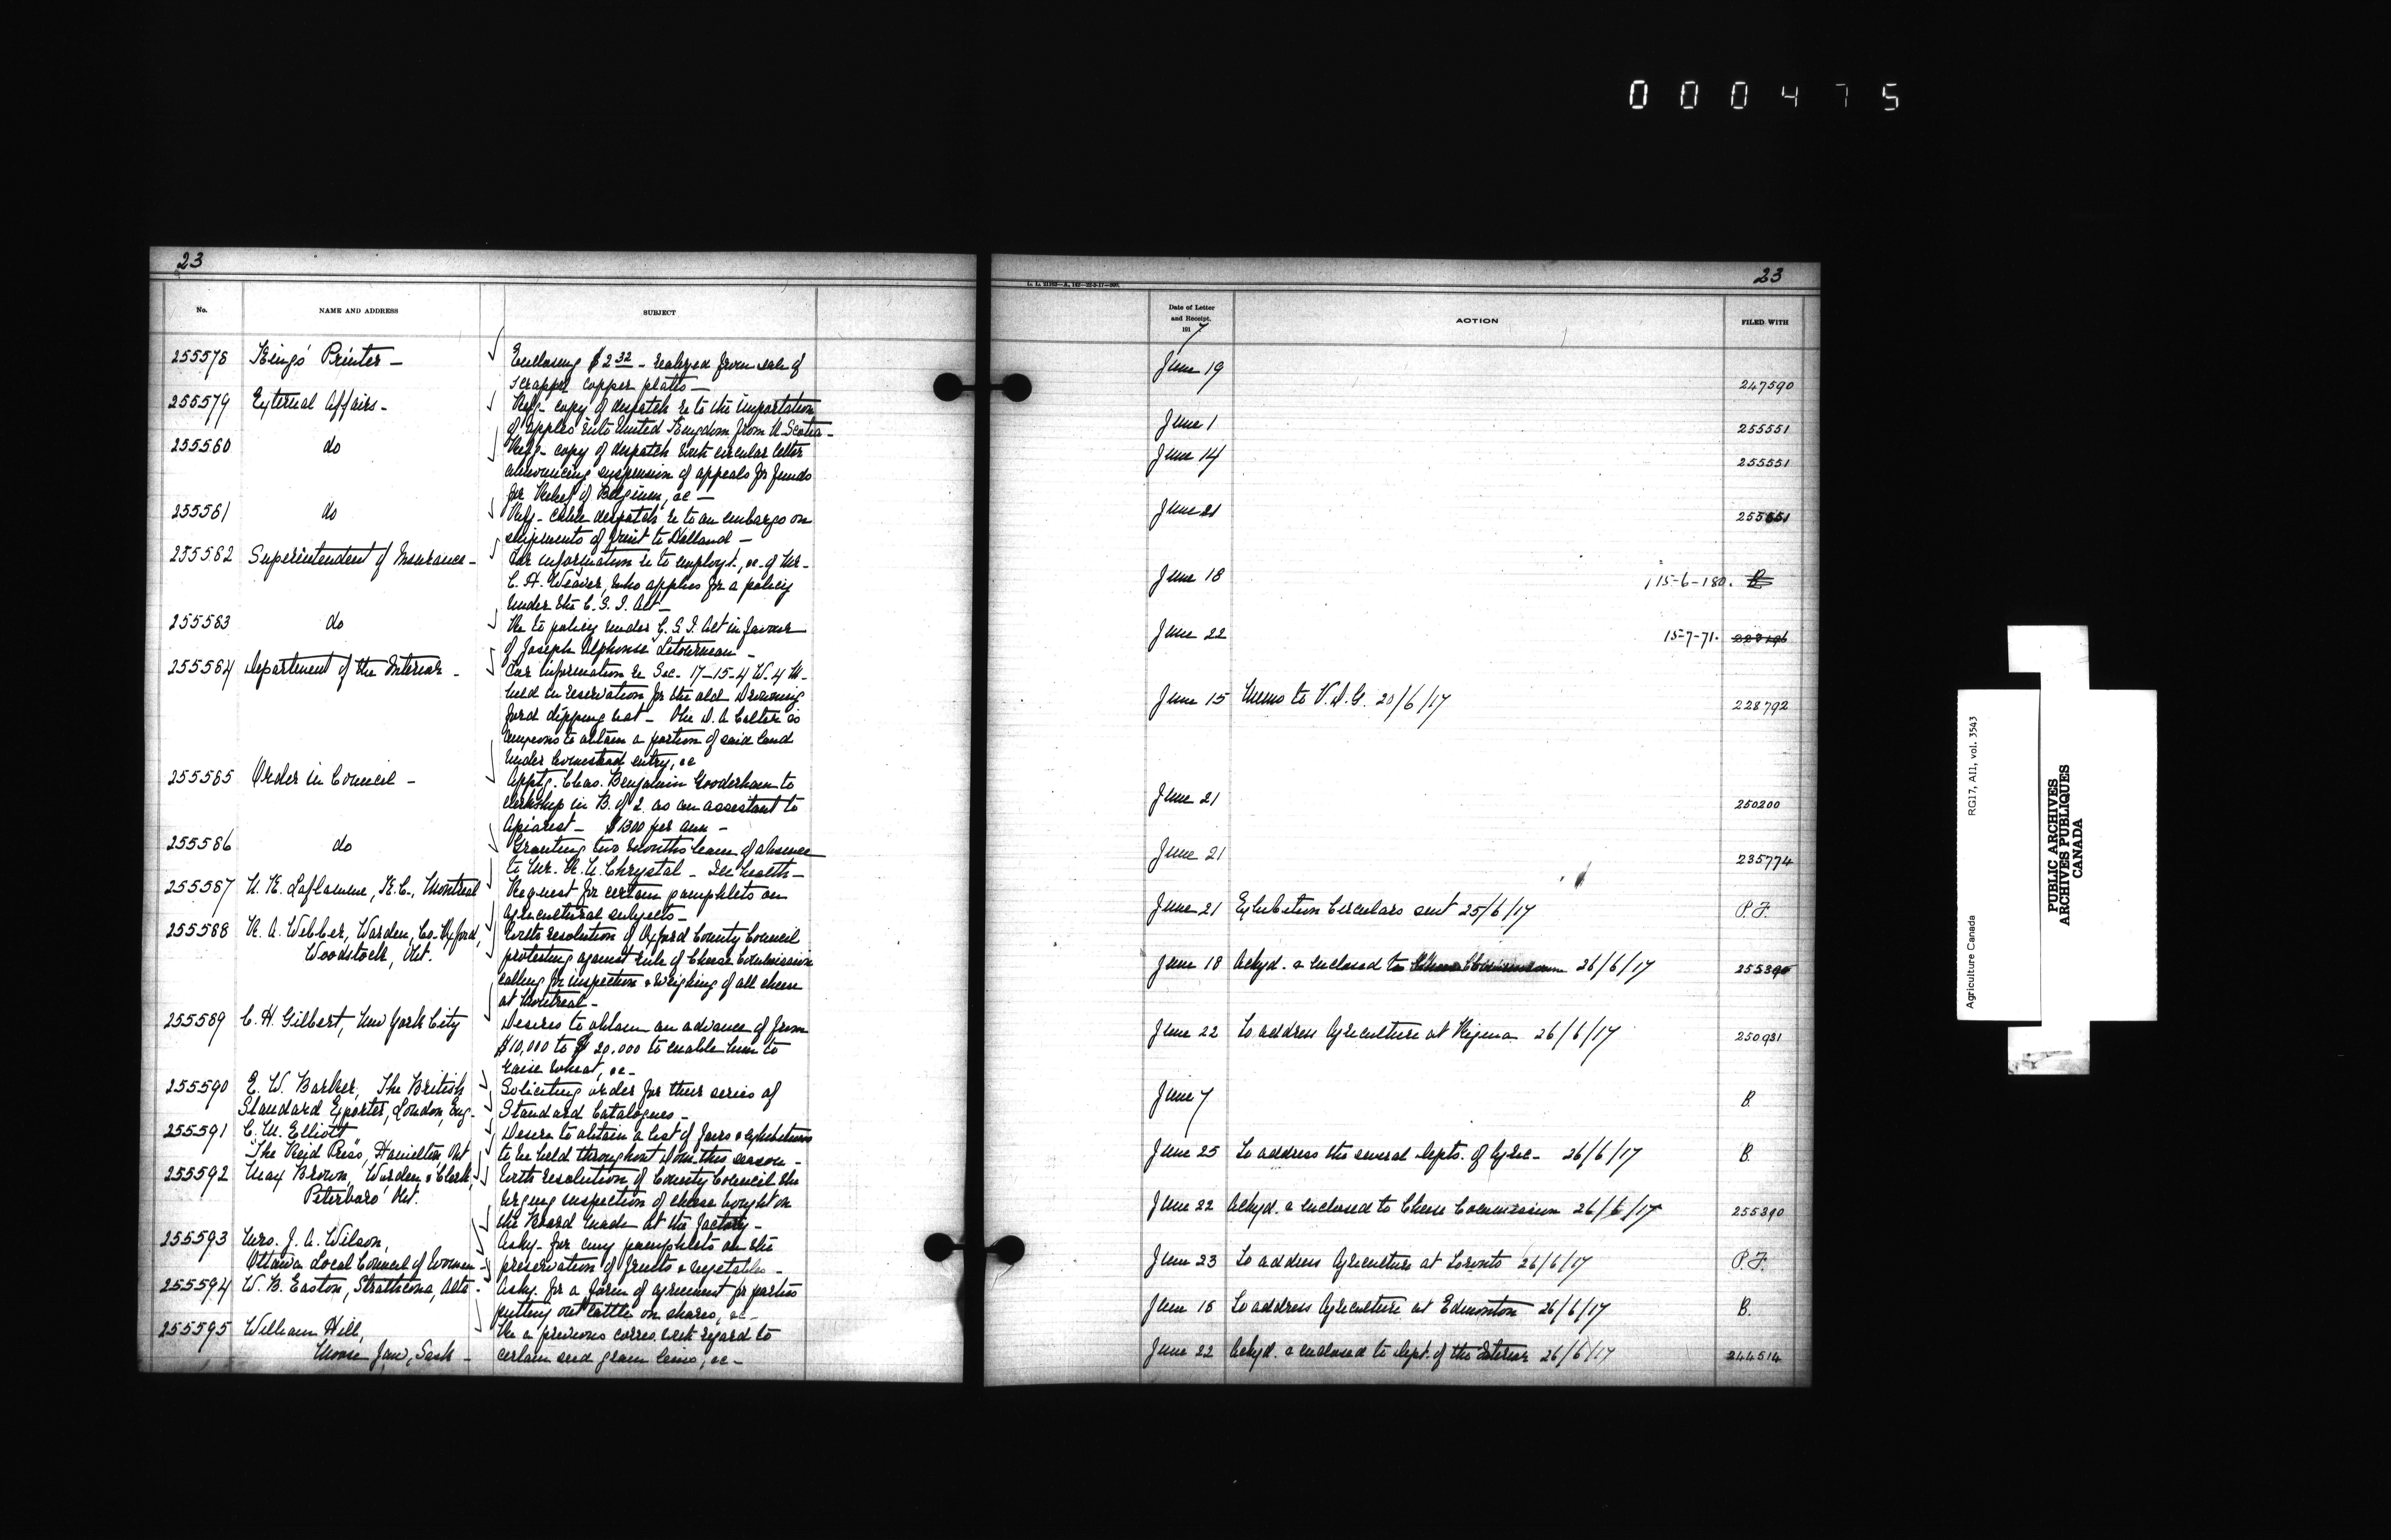 000475
23
No.
NAME AND ADDRESS
SUBJECT
255578 King's Printer —
Enclosing $2 32 - realized from sale of
scrapped copper plates —
255579 External Affairs -
Refg - copy of despatch re to the importation
of apples into United Kingdom from N. Scotia -
255580 do
Refg - copy of despatch with circular letter
announcing suspension of appeals for funds
for Relief of Belgium, &c —
255581 do
Refg - cable despatch re to an embargo on
shipments of fruit to Holland —
255582 Superintendent of Insurance -
For information re to employt., &c. of Mr.
C. A. Weaver, who applies for a policy
under the C. S. I. Act —
255583 do
Re to policy under C. S. I. Act in favour
of Joseph Alphonse Letourneau —
255584 Department of the Interior -
For information re Sec. 17-15-4 W. 4 M.
held in reservation for the old Drowning
ford dipping vat - The D. A. Colter is
anxious to obtain a portion of said land
under homestead entry, &c
255585 Order in Council -
Apptg. Chas. Benjamin Gooderham to
clerkship in B. of 2. as an assistant to
Apiarist — $1300 per ann —
255586 do
Granting two months leave of absence
to Mr. Chrystal - Ill health —
255587 N. K. Laflamme, K.C., Montreal
Request for certain pamphlets on
agricultural subjects —
255588 R. A. Webber, Warden, Co. Oxford,
Woodstock, Ont.
With resolution of Oxford County Council
protesting against rule of Cheese Commission
calling for inspection & weighing of all cheese
at Montreal —
255589 C. H. Gilbert, New York City
Desires to obtain an advance of from
$10,000 to $20,000 to enable him to
raise wheat, &c —
255590 E. W. Barker, The British
Standard Exporter, London, Eng -
Soliciting order for their series of
Standard Catalogues —
255591 C. M. Elliott
"The Reid Press", Hamilton, Ont
Desires to obtain a list of fairs & exhibitions
to be held throughout Dom. this season -
255592 Max Brown, Warden & Clerk,
Peterboro' Ont.
With resolution of County Council the
urging inspection of cheese bought on
the Board made at the factory —
255593 Mrs. J. A. Wilson,
Ottawa Local Council of Women -
Askg. for any pamphlets on the
preservation of fruits & vegetables -
255594 W. B. Easton, Strathcona, Alta -
Askg. for a form of agreement for parties
putting out cattle on shares, &c -
255595 William Hill,
Moose Jaw, Sask -
Re a previous corres. with regard to
certain seed grain liens, &c -
23
Date of Letter
and Receipt,
1917
ACTION
FILED WITH
June 19 247590
June 1 255551
June 14 255551
June 21 255551
June 18 15-6-180. B
June 22 15-7-71.
June 15 Memo to V. D. G. 20/6/17 228792
June 21 250200
June 21 235774
June 21 Exhibition Circulars sent 25/6/17 P.F.
June 18 Ackgd. & enclosed to Cheese Commission 26/6/17 255390
June 22 To address Agriculture at Regina 26/6/17 250931
June 7 B.
June 25 To address the several Depts. of Agric - 26/6/17 B.
June 22 Ackgd. & enclosed to Cheese Commission 26/6/17 255390
June 23 To address Agriculture at Toronto 26/6/17 P.F.
June 18 To address Agriculture at Edmonton 26/6/17 B.
June 22 Ackgd. & enclosed to Dept. of the Interior 26/6/17 244514
Agriculture Canada RG17, A11, vol. 3543
PUBLIC ARCHIVES
ARCHIVES PUBLIQUES
CANADA